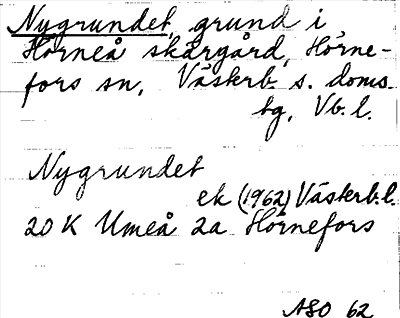 Nygrundet, grund i
Hörneå skärgård, Hörne-
fors sn, Västerb. s. doms.
bg, Vb. l.
Nygrundet
ek (1962) Västerb. l.
20 K Umeå 2a Hörnefors
ASO 62